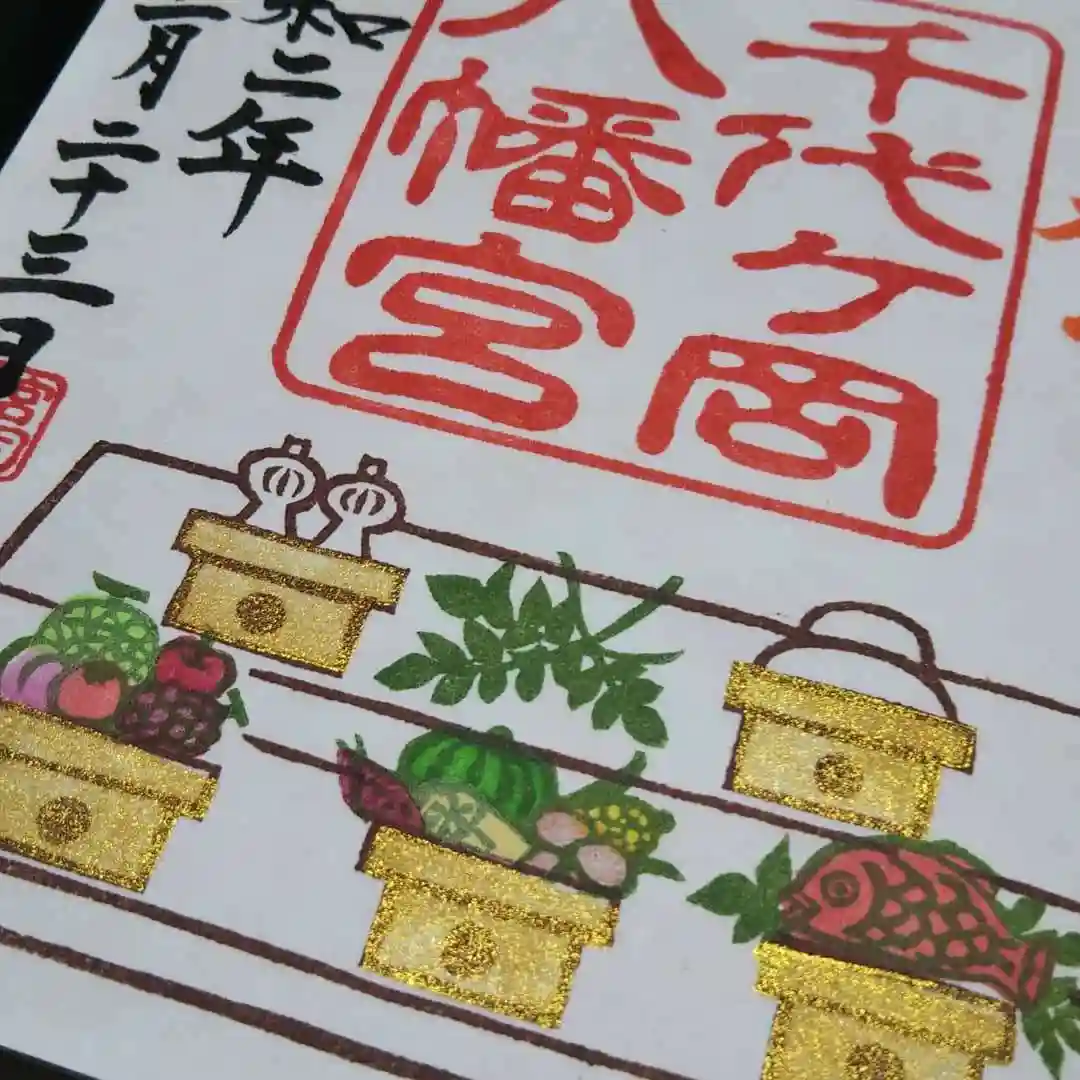 千代ケ岡
八幡宮
和二年
月二十三日